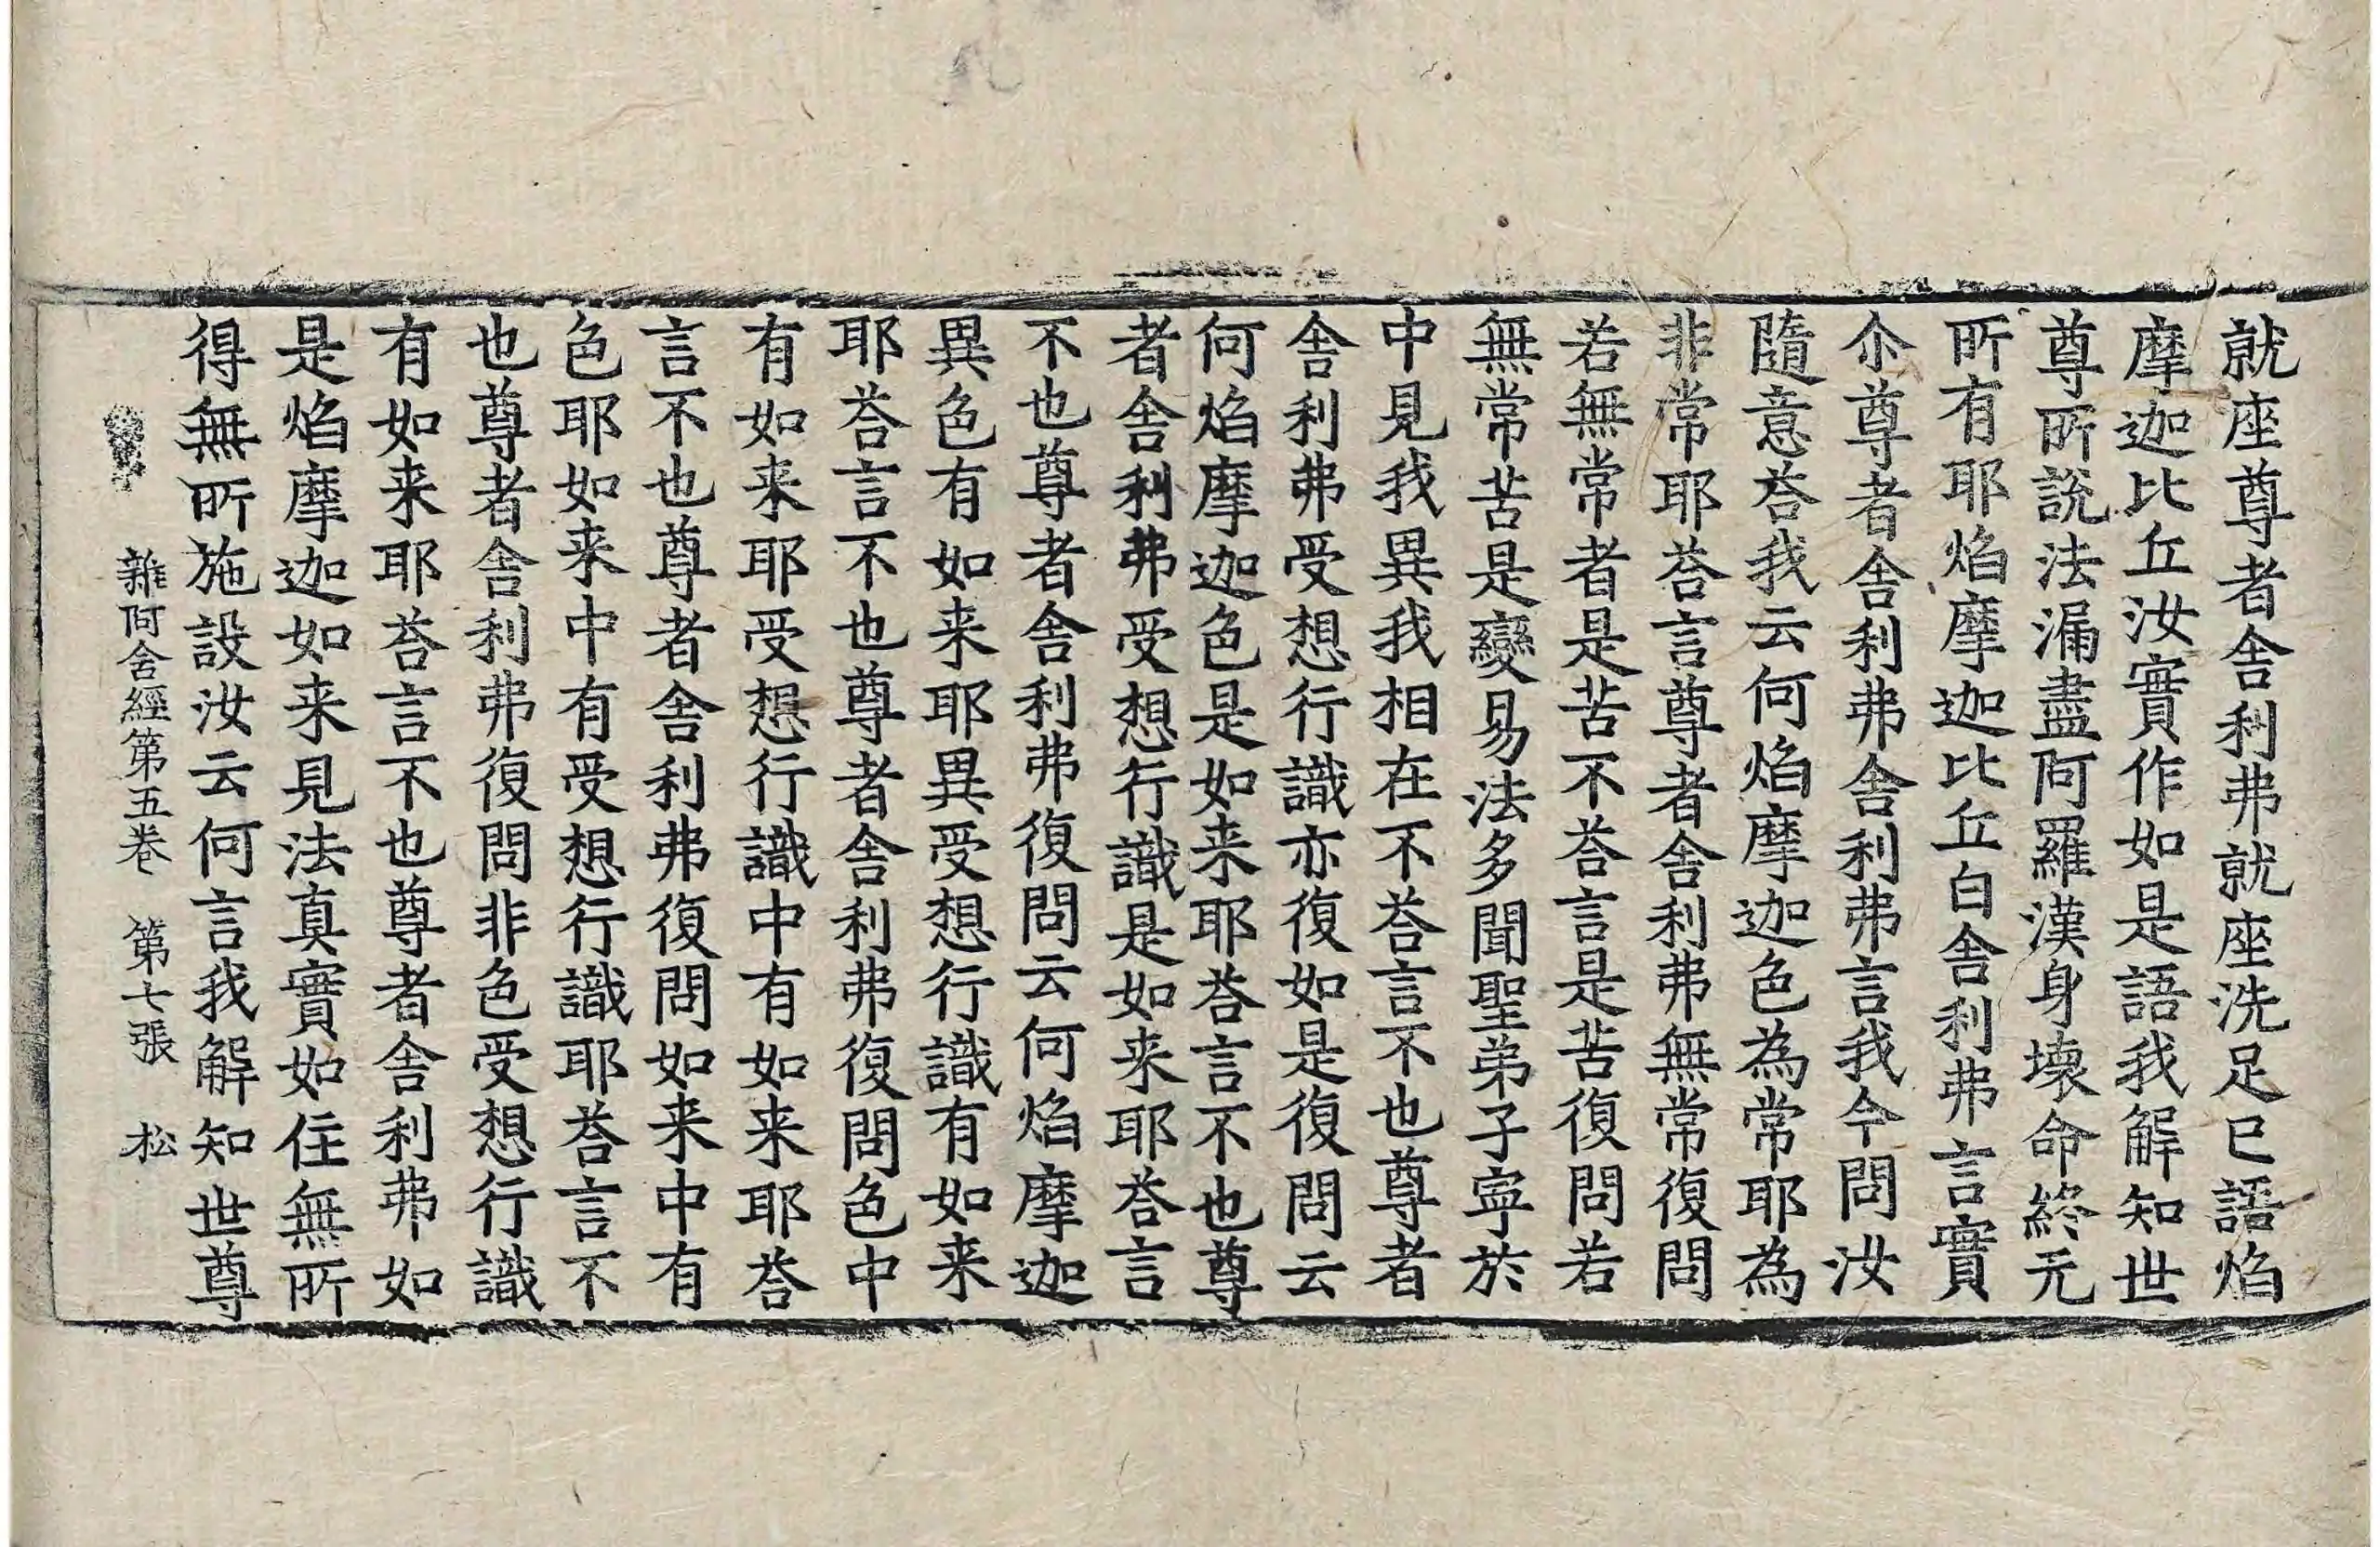 就座尊者舎利弗就座洗足已語焰
摩迦比丘汝實作如是語我解知世
尊所說法漏盡阿羅漢身壞命終无
所有耶焰摩迦比丘白舎利弗言實
尒尊者舎利弗舎利弗言我今問汝
隨意荅我云何焰摩迦色為常耶為
非常耶荅言尊者舎利弗無常復問
若無常者是苦不荅言是苦復問若
無常苦是變易法多聞聖弟子寧於
中見我異我相在不荅言不也尊者
舎利弗受想行識亦復如是復問云
何焰摩迦色是如来耶荅言不也尊
者舎利弗受想行識是如来耶荅言
不也尊者舎利弗復問云何焰摩迦
異色有如来耶異受想行識有如来
耶荅言不也尊者舎利弗復問色中
有如来耶受想行識中有如来耶荅
言不也尊者舎利弗復問如来中有
色耶如来中有受想行識耶荅言不
也尊者舎利弗復問非色受想行識
有如来耶荅言不也尊者舎利弗如
是焰摩迦如来見法真實如住無所
得無所施設汝云何言我解知世尊
雜阿舍經第五卷 第七張 松